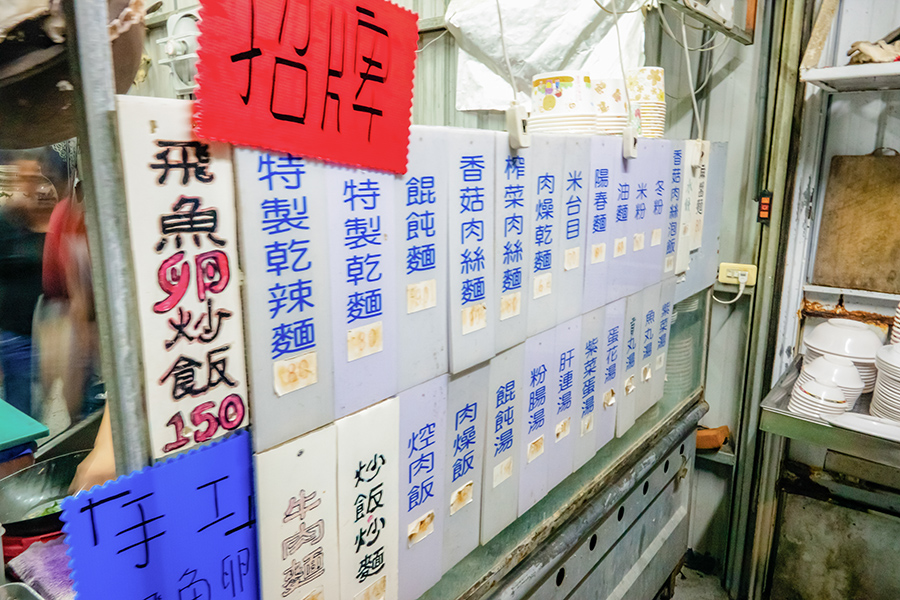 招牌
飛魚卵炒飯
150
特製乾辣麵
80
特製乾麵
80
餛飩麵
香菇肉絲麵
榨菜肉絲麵
肉燥乾麵
米台目
陽春麵
油麵
米粉
冬粉
香菇肉絲泡飯
牛肉麵
炒飯炒麵
焢肉飯
肉燥飯
餛飩湯
粉腸湯
肝連湯
紫菜蛋湯
蛋花湯
魚丸湯
紫菜湯
手工
魚卵